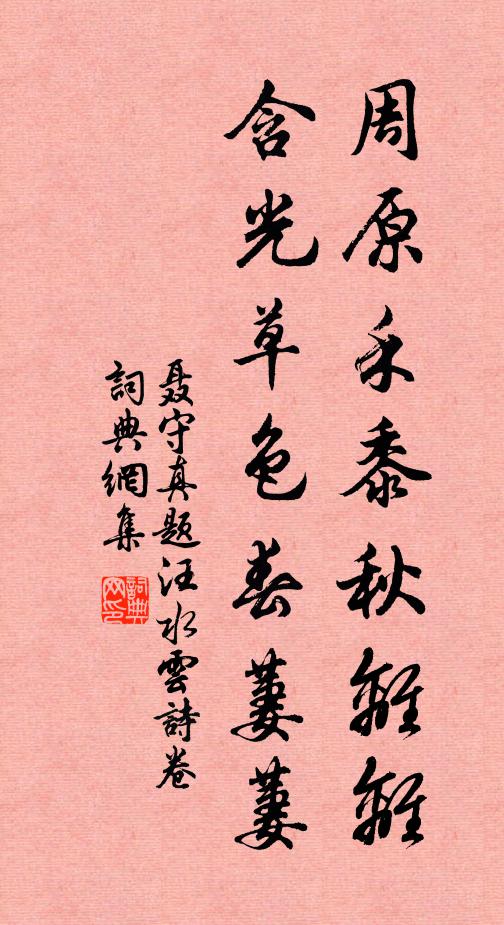 周原禾黍秋離離
含光草色春萋萋
聂守真题汪水雲詩卷
詞典網集
詞典网印